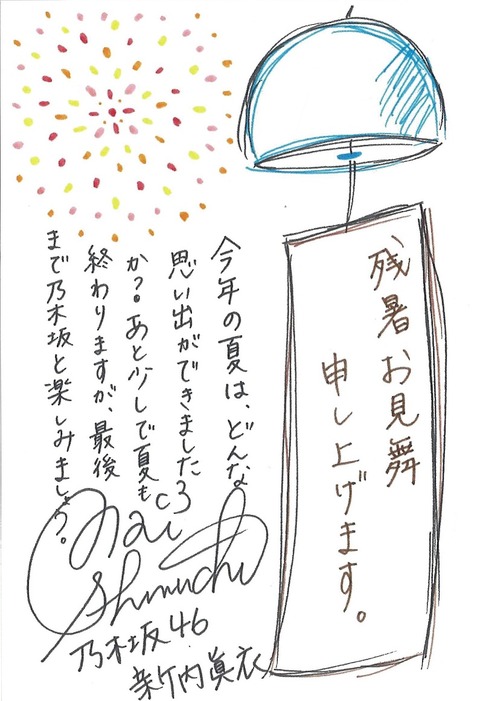 残暑お見舞
申し上げます。
今年の夏は、どんな
思い出ができました
か？。あと少しで夏も
終わりますが、最後
まで乃木坂と楽しみましょう。
Mai
Shinuchi
乃木坂46
新内眞衣